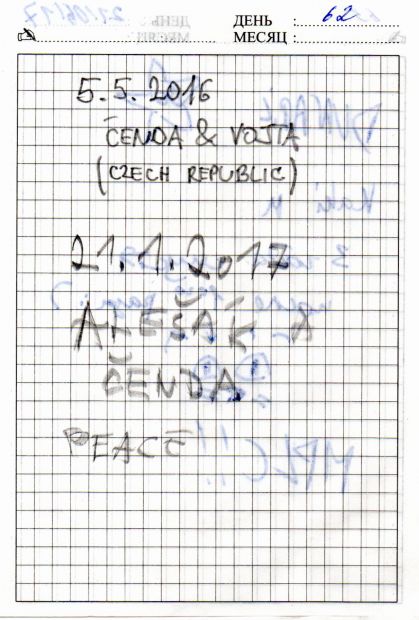 ДЕНЬ : 62
МЕСЯЦ :
5.5. 2016
ČENDA & VOJTA
(CZECH REPUBLIC)
21.1.2017
ALEŠÁK &
ČENDA
PEACE